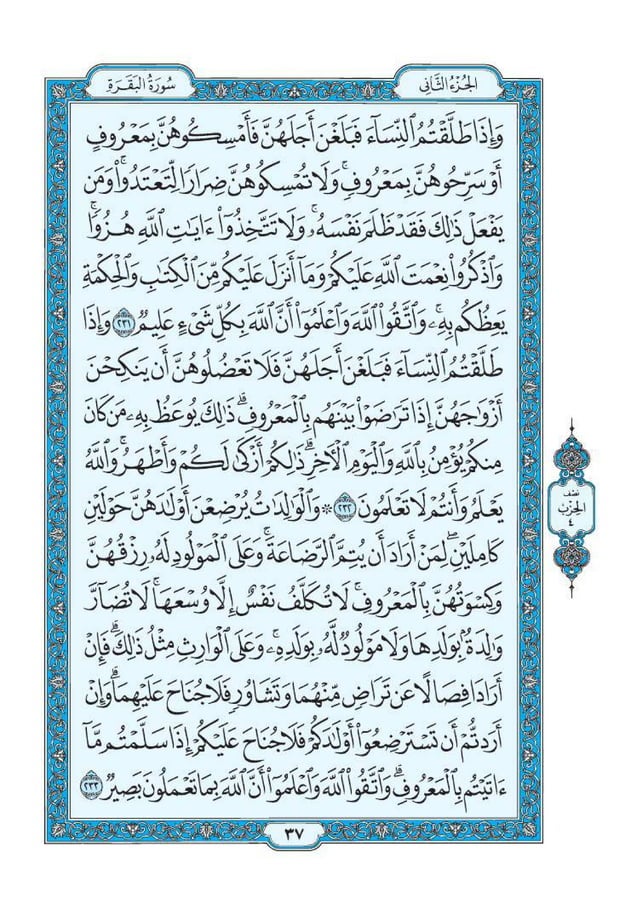 الجُزْءُ الثَّانِي
سُورَةُ البَقَرَةِ
وَإِذَا طَلَّقْتُمُ ٱلنِّسَآءَ فَبَلَغْنَ أَجَلَهُنَّ فَأَمْسِكُوهُنَّ بِمَعْرُوفٍ
أَوْ سَرِّحُوهُنَّ بِمَعْرُوفٍۚ وَلَا تُمْسِكُوهُنَّ ضِرَارًا لِّتَعْتَدُوا۟ۚ وَمَن
يَفْعَلْ ذَٰلِكَ فَقَدْ ظَلَمَ نَفْسَهُۥۚ وَلَا تَتَّخِذُوٓا۟ ءَايَٰتِ ٱللَّهِ هُزُوًاۚ
وَٱذْكُرُوا۟ نِعْمَتَ ٱللَّهِ عَلَيْكُمْ وَمَآ أَنزَلَ عَلَيْكُم مِّنَ ٱلْكِتَٰبِ وَٱلْحِكْمَةِ
يَعِظُكُم بِهِۦۚ وَٱتَّقُوا۟ ٱللَّهَ وَٱعْلَمُوٓا۟ أَنَّ ٱللَّهَ بِكُلِّ شَىْءٍ عَلِيمٌ ٢٣١ وَإِذَا
طَلَّقْتُمُ ٱلنِّسَآءَ فَبَلَغْنَ أَجَلَهُنَّ فَلَا تَعْضُلُوهُنَّ أَن يَنكِحْنَ
أَزْوَٰجَهُنَّ إِذَا تَرَٰضَوْا۟ بَيْنَهُم بِٱلْمَعْرُوفِۗ ذَٰلِكَ يُوعَظُ بِهِۦ مَن كَانَ
مِنكُمْ يُؤْمِنُ بِٱللَّهِ وَٱلْيَوْمِ ٱلْءَاخِرِۗ ذَٰلِكُمْ أَزْكَىٰ لَكُمْ وَأَطْهَرُۚ وَٱللَّهُ
يَعْلَمُ وَأَنتُمْ لَا تَعْلَمُونَ ٢٣٢ ۞ وَٱلْوَٰلِدَٰتُ يُرْضِعْنَ أَوْلَٰدَهُنَّ حَوْلَيْنِ
كَامِلَيْنِۖ لِمَنْ أَرَادَ أَن يُتِمَّ ٱلرَّضَاعَةَۚ وَعَلَى ٱلْمَوْلُودِ لَهُۥ رِزْقُهُنَّ
وَكِسْوَتُهُنَّ بِٱلْمَعْرُوفِۚ لَا تُكَلَّفُ نَفْسٌ إِلَّا وُسْعَهَاۚ لَا تُضَآرَّ
وَٰلِدَةٌۢ بِوَلَدِهَا وَلَا مَوْلُودٌ لَّهُۥ بِوَلَدِهِۦۚ وَعَلَى ٱلْوَارِثِ مِثْلُ ذَٰلِكَۗ فَإِنْ
أَرَادَا فِصَالًا عَن تَرَاضٍ مِّنْهُمَا وَتَشَاوُرٍ فَلَا جُنَاحَ عَلَيْهِمَاۗ وَإِنْ
أَرَدتُّمْ أَن تَسْتَرْضِعُوٓا۟ أَوْلَٰدَكُمْ فَلَا جُنَاحَ عَلَيْكُمْ إِذَا سَلَّمْتُم مَّآ
ءَاتَيْتُم بِٱلْمَعْرُوفِۗ وَٱتَّقُوا۟ ٱللَّهَ وَٱعْلَمُوٓا۟ أَنَّ ٱللَّهَ بِمَا تَعْمَلُونَ بَصِيرٌ ٢٣٣
نصف
الحزب
٤
٣٧